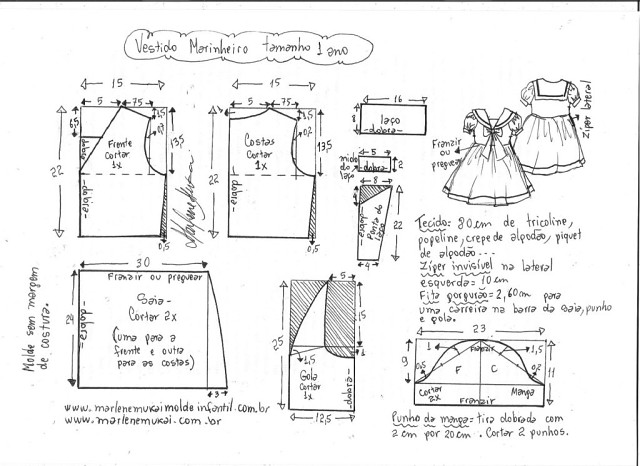 Vestido Marinheiro tamanho 1 ano
15
5
7,5
1,5
6,5
0,7
13,5
22
Frente
Cortar
1x
dobra
-dobra-
0,5
15
5
7,5
1,5
0,2
13,5
22
Costas
Cortar
1x
-dobra-
0,5
16
8
laço
-dobra-
5
miolo
do
laço
-dobra-
2
8
22
-dobra-
Ponta do
laço
4
Franzir
ou
preguear
Zíper lateral
Tecido= 80cm de tricoline,
popeline, crepe de algodão, piquet
de algodão...
Zíper invisível na lateral
esquerda= 10cm
Fita gorgurão= 2,60cm para
uma carreira na barra da saia, punho
e gola.
30
Franzir ou preguear
24
-dobra-
Saia-
Cortar 2x
(uma para a
frente e outra
para as costas)
3
Molde sem margem
de costura.
5
25
15
1,5
1
Gola
Cortar
1x
dobra-
12,5
23
9
1
Franzir
1,5
0,5
F
C
0,2
11
Cortar
2x
Manga
Franzir
Punho da manga= tira dobrada com
2cm por 20cm. Cortar 2 punhos.
www.marlenemukaimoldeinfantil.com.br
www.marlenemukai.com.br